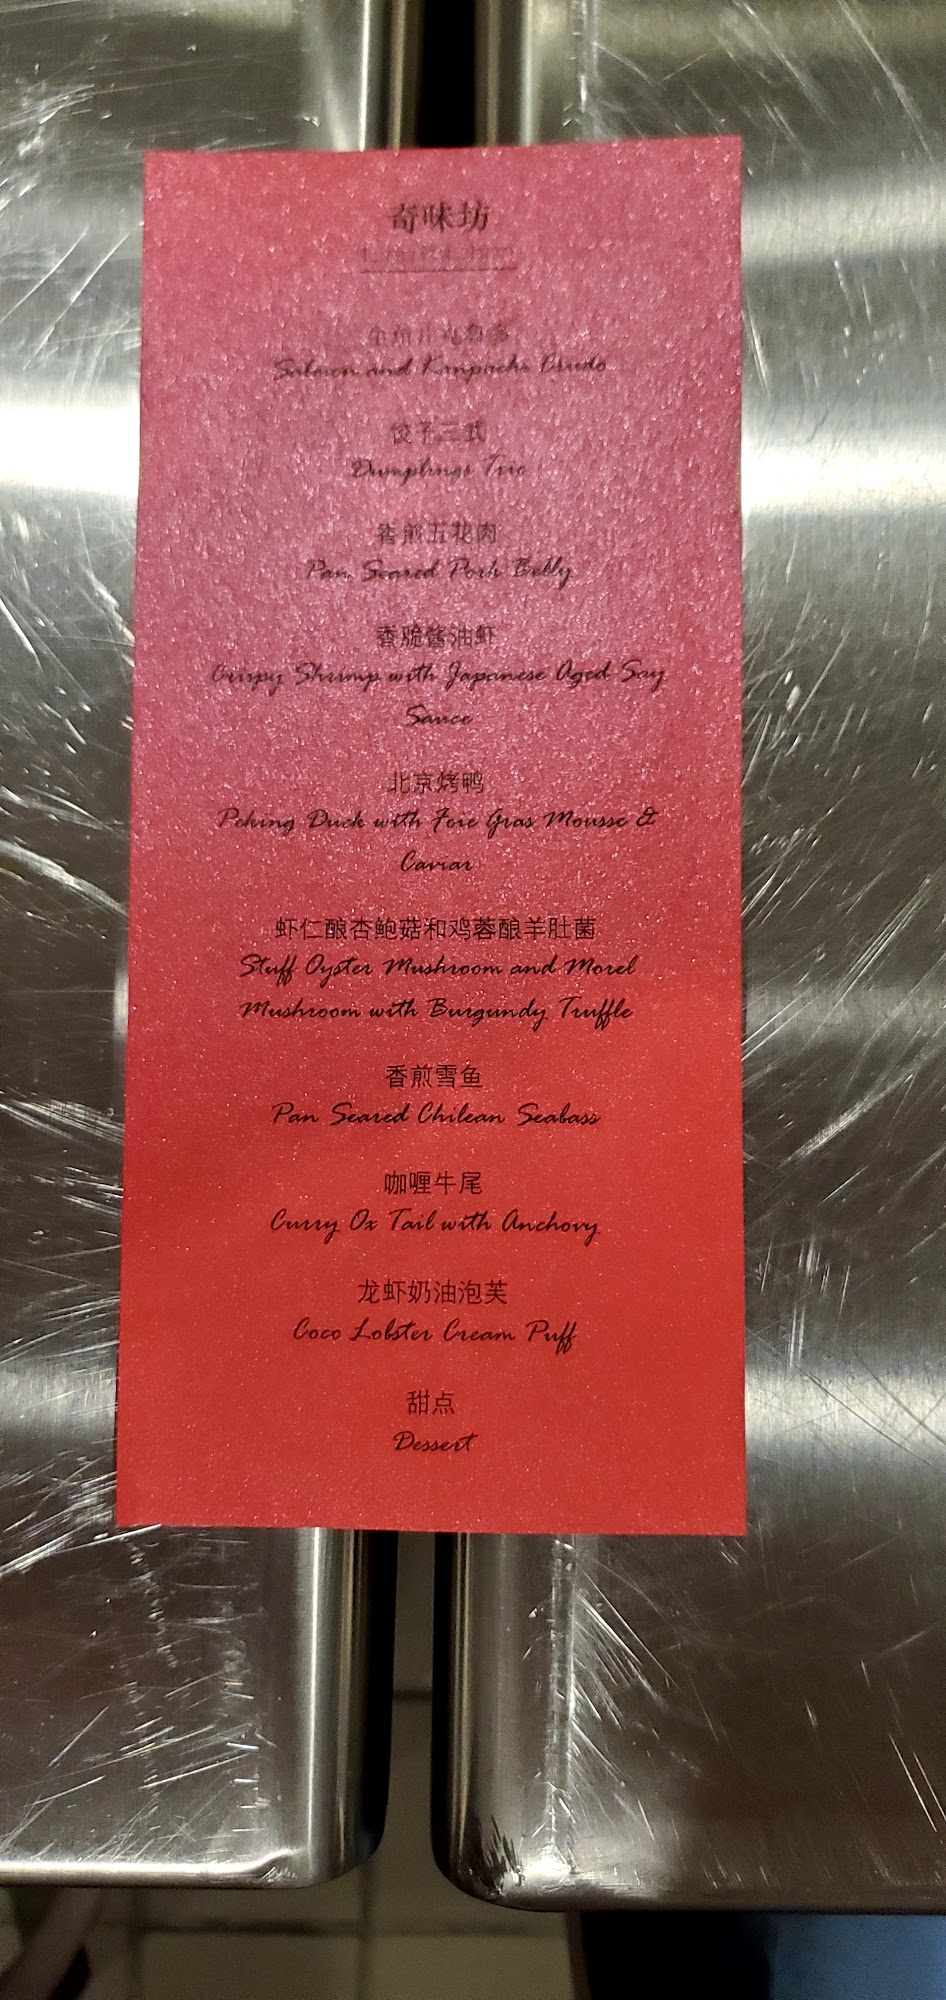 奇味坊
Salmon and Kanpachi Crudo
饺子三式
Dumplings Trio
香煎五花肉
Pan Seared Pork Belly
香脆酱油虾
Crispy Shrimp with Japanese Aged Soy
Sauce
北京烤鸭
Peking Duck with Foie Gras Mousse &
Caviar
虾仁酿杏鲍菇和鸡蓉酿羊肚菌
Stuff Oyster Mushroom and Morel
Mushroom with Burgundy Truffle
香煎雪鱼
Pan Seared Chilean Seabass
咖喱牛尾
Curry Ox Tail with Anchovy
龙虾奶油泡芙
Coco Lobster Cream Puff
甜点
Dessert